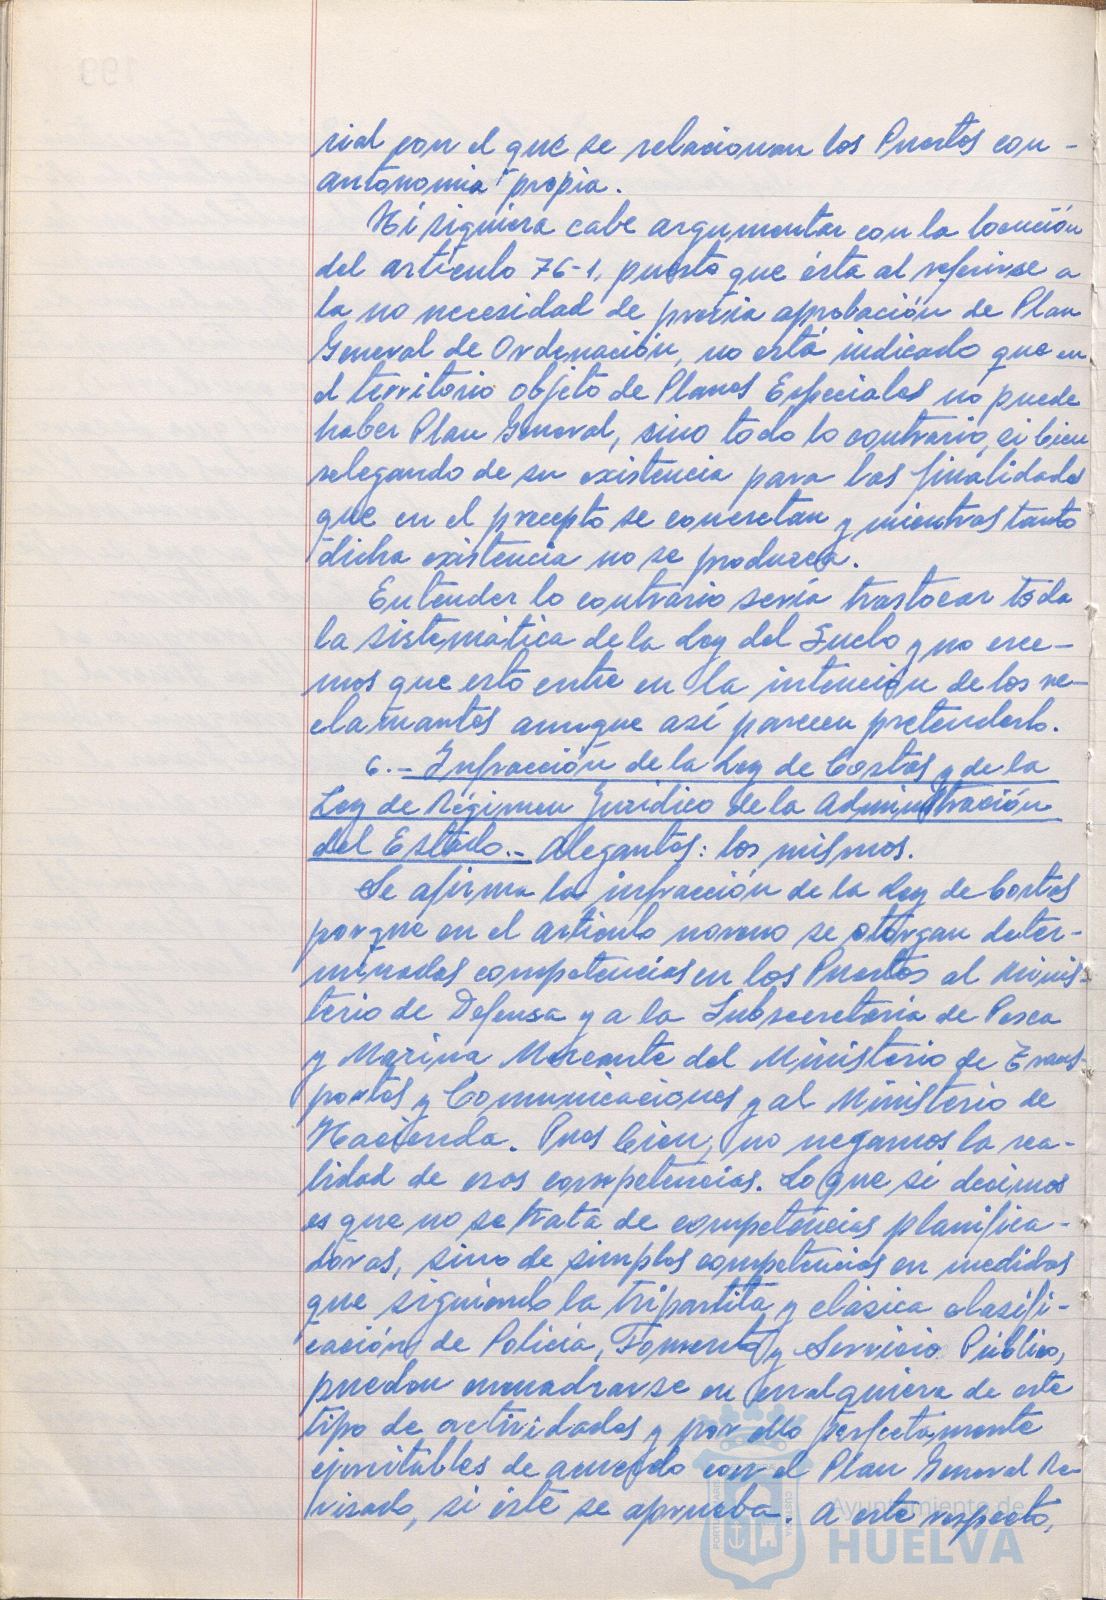 rial con el que se relacionan los Puertos con-
autonomia propia.
Ni siquiera cabe argumentar con la locución
del artículo 76-1, puesto que ésta al referirse a
la no necesidad de previa aprobación de Plan
General de Ordenación, no está indicado que en
el territorio objeto de Planes Especiales no puede
haber Plan General, sino todo lo contrario, si bien
relegando de su existencia para las finalidades
que en el precepto se concretan y mientras tanto
dicha existencia no se produzca.
Entender lo contrario sería trastocar toda
la sistemática de la Ley del Suelo y no cree-
mos que esto entre en la intención de los re-
clamantes aunque así parecen pretenderlo.
6.- Infracción de la Ley de Costas y de la
Ley de Régimen Jurídico de la Administración
del Estado.- Alegantes: los mismos.
Se afirma la infracción de la Ley de Costas
porque en el artículo noveno se otorgan deter-
minadas competencias en los Puertos al Minis-
terio de Defensa y a la Subsecretaría de Pesca
y Marina Mercante del Ministerio de Trans-
portes y Comunicaciones y al Ministerio de
Hacienda. Pues bien, no negamos la rea-
lidad de esas competencias. Lo que si decimos
es que no se trata de competencias planifica-
doras, sino de simples competencias en medidas
que siguiendo la tripartita y clásica clasifi-
cación de Policía, Fomento y Servicio Público,
pueden encuadrarse en cualquiera de este
tipo de actividades y por ello perfectamente
ejercitables de acuerdo con el Plan General Re-
visado, si éste se aprueba. A este respecto,
Ayuntamiento de
HUELVA